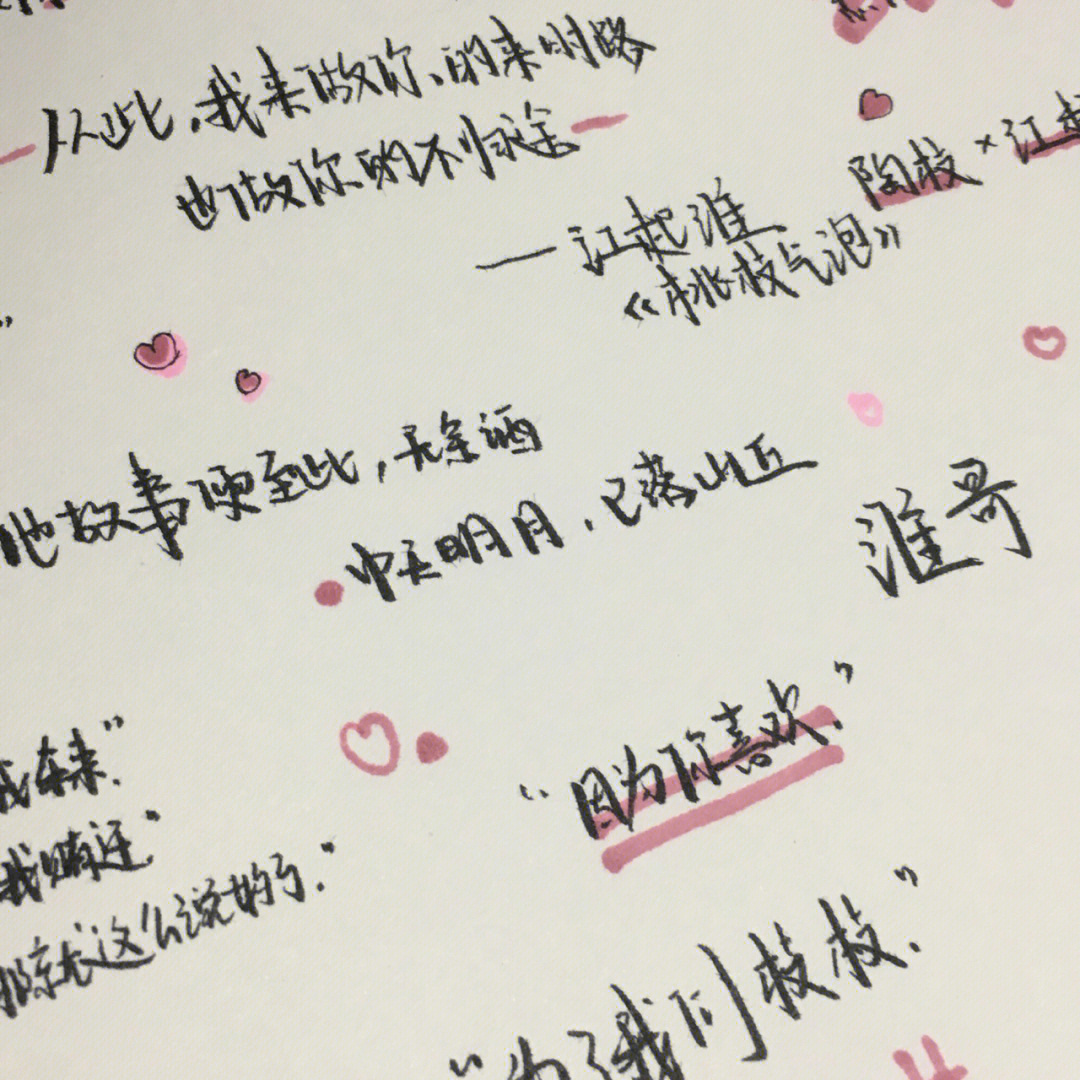 从此,我来做你的来时路
也做你的不归途
陶枝×江起
——江起淮
《桃枝气泡》
他故事便至此,无余酒
中天明月,已落山丘
淮哥
我东来."
"因为你喜欢."
我赔还"
那就这么说好了."
"为了我们枝枝."